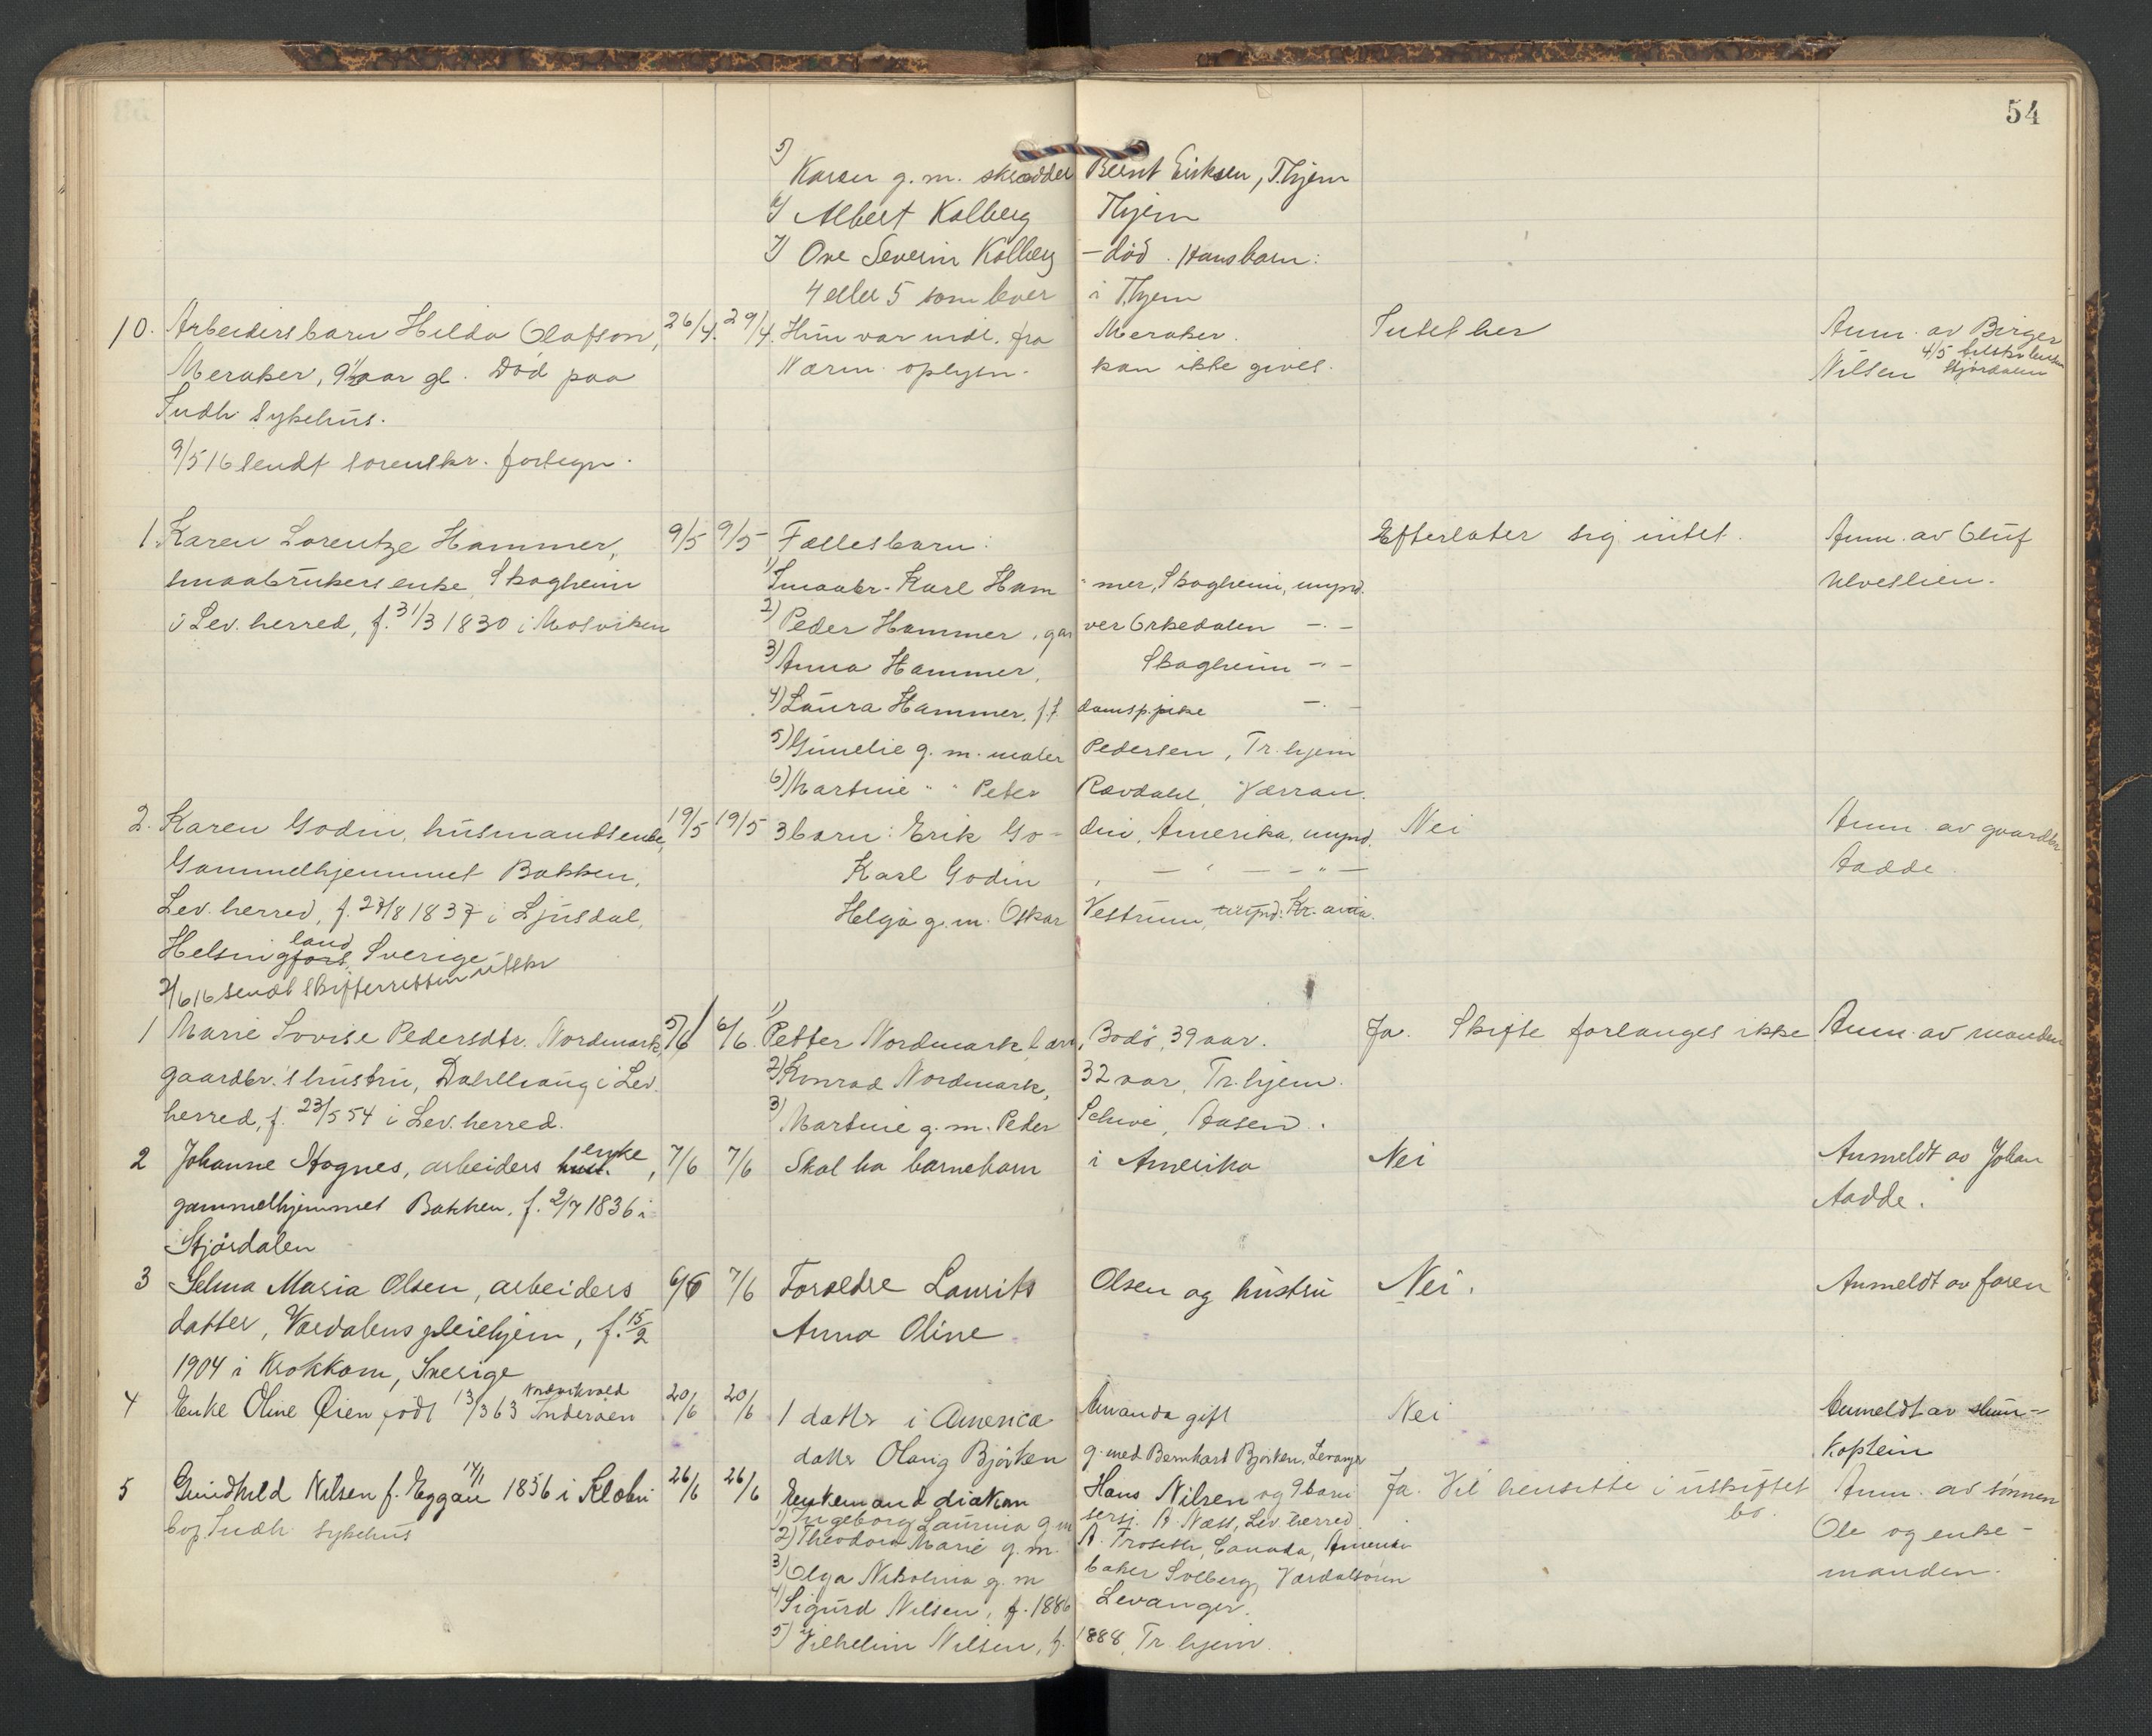 54
5) Karen g. m. skrædder Bernt Eriksen, T.hjem
6) Albert Kolberg Thjem
7) Ove Severin Kolberg - död. Hans barn:
4 eller 5 som lever i T.hjem
10. Arbeidersbarn Hilda Olafson, 26/4. 29/4. Hun var midl. fra Meraker. Intet her Anm. av Birger
Meraker, 9 1/2 aar gl. Död paa Nærm. oplysn. kan ikke gives. Nilsen 4/5 Stjördalen
Indh. Sykehus.
9/5 16 sendt sorenskr. fortegn.
1. Karen Lorentze Hammer, 9/5 9/5 Fællesbarn: Efterlater sig intet. Anm. av Oluf
smaabrukers enke, Skogheim 1) Smaabr. Karl Ham mer, Skogheim, mynd. Ulveslien.
i Lev. herred, f. 31/3 1830 i Mosviken 2) Peder Hammer, gar ver Orkedalen - . -
3) Anna Hammer, Skogheim - " -
4) Laura Hammer, f.t. dampsp. pike - . -
5) Gunelie g. m. maler Pedersen, Tr. hjem
6) Martine " " Peter Ravdahl, Værran.
2. Karen Godin, husmandsenke, 19/5 19/5 3 barn: Erik Go- din, Amerika, mynd. Nei Anm. av gaardbr.
Gammelhjemmet Bakken, Karl Godin , - " - - " - Aadde
Lev. herred, f. 27/8 1837 i Ljusdal, Helga g. m. Oskar Vestrum, mynd. Kr. ania.
Helsingfors land, Sverige
2/6 16 sendt skifteretten utskr
1 Marie Lovise Pedersdtr. Nordmark, 5/6 6/6. 1) Petter Nordmark, lærer, Bodö, 39 aar. Ja. Skifte forlanges ikke Anm. av manden
gaardbr.'s hustru, Dahlhaug i Lev. 2) Konrad Nordmark, 32 aar, Tr. hjem.
herred, f. 23/5 54 i Lev. herred. 3) Martine g. m. Peder Schive, Aasen.
2 Johanne Hognes, arbeiders hust. enke, 7/6 7/6 Skal ha barnebarn i Amerika Nei Anmeldt av Johan
gammelhjemmet Bakken, f. 2/7 1836 i Aadde.
Stjördalen
3 Selma Maria Olsen, arbeiders 6/6 7/6 Foraeldre Laurits Olsen og hustru Nei. Anmeldt av faren
datter, Værdalens pleiehjem, f. 15/2 Anna Oline
1904 i Krokkom, Sverige
4 Enke Oline Øien födt 13/3 63 Inderöen 20/6 20/6 1 datter i America Amanda gift Nei Anmeldt av
datter Olaug Björken g. med Bernhart Björken, Levanger Koplein
5 Gundhild Nilsen f. Eggan 14/1 1856 i Klæbu 26/6 26/6 Enkemand diakon Hans Nilsen og 9 barn Ja. Vil hensitte i uskiftet bo. Anm. av sönnen
bop Indh. sykehus 1) Ingeborg Laurnia g m sersj. A. Næss, Lev. herred. Ole og enke-
2) Theodora Marie g. m. A. Froseth, Canada, Amerika manden.
3) Olga Nikolina g. m baker Solberg, Værdalsören
4) Sigurd Nilsen, f. 1886 Levanger.
5) Vilhelm Nilsen, f. 1888, Tr. hjem.